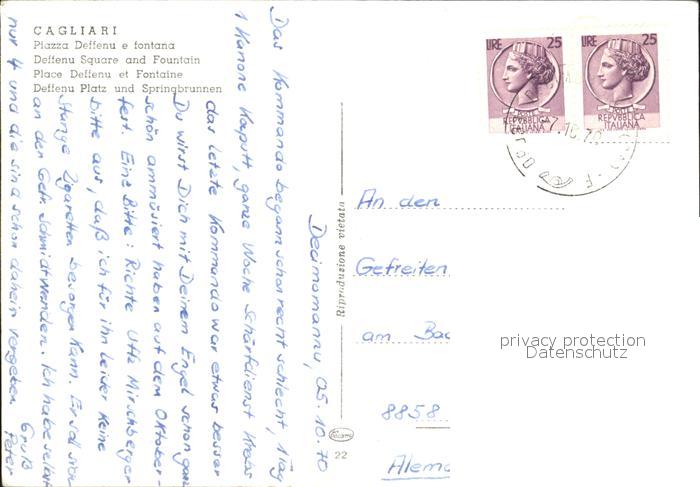 CAGLIARI
Piazza Deffenu e fontana
Deffenu Square and Fountain
Place Deffenu et Fontaine
Deffenu Platz und Springbrunnen
Decimomannu, 05.10.70
Das Kommando begann schon recht schlecht, 1 Tag
1 Kanone kaputt, ganze Woche Schärfdienst
das letzte Kommando war etwas besser
Du wirst Dich mit Deinem Engel schon ganz
schön ammüsiert haben auf dem Oktober-
fest. Eine Bitte: Richte Uffz Hirschberger
bitte aus, daß ich für ihn leider keine
Stange Zigaretten besorgen kann. Er soll sich
an den Gefr. Schmidt wenden. Ich habe selbst
nur 4 und die sind schon daheim vergeben
Gruß
Peter
Riproduzione vietata
22
LIRE 25
POSTE
REPVBBLICA
ITALIANA
LIRE 25
POSTE
REPVBBLICA
ITALIANA
7.10.70
An den
Gefreiten
am Bac
8858
Alema
privacy protection
Datenschutz